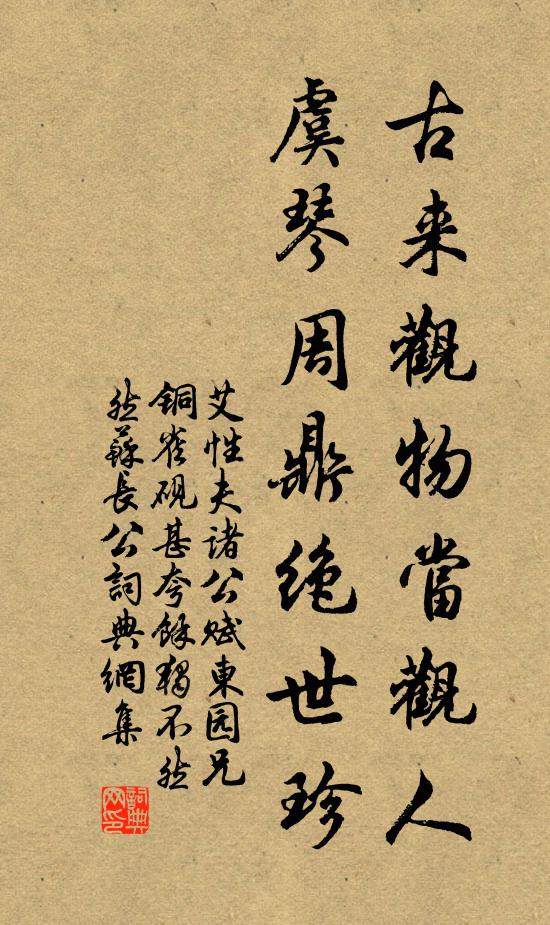 古来觀物當觀人
虞琴周鼎絶世珍
艾性夫诸公赋東园兄
铜雀砚甚夸餘獨不然
然蘇長公詞典網集
詞典网印